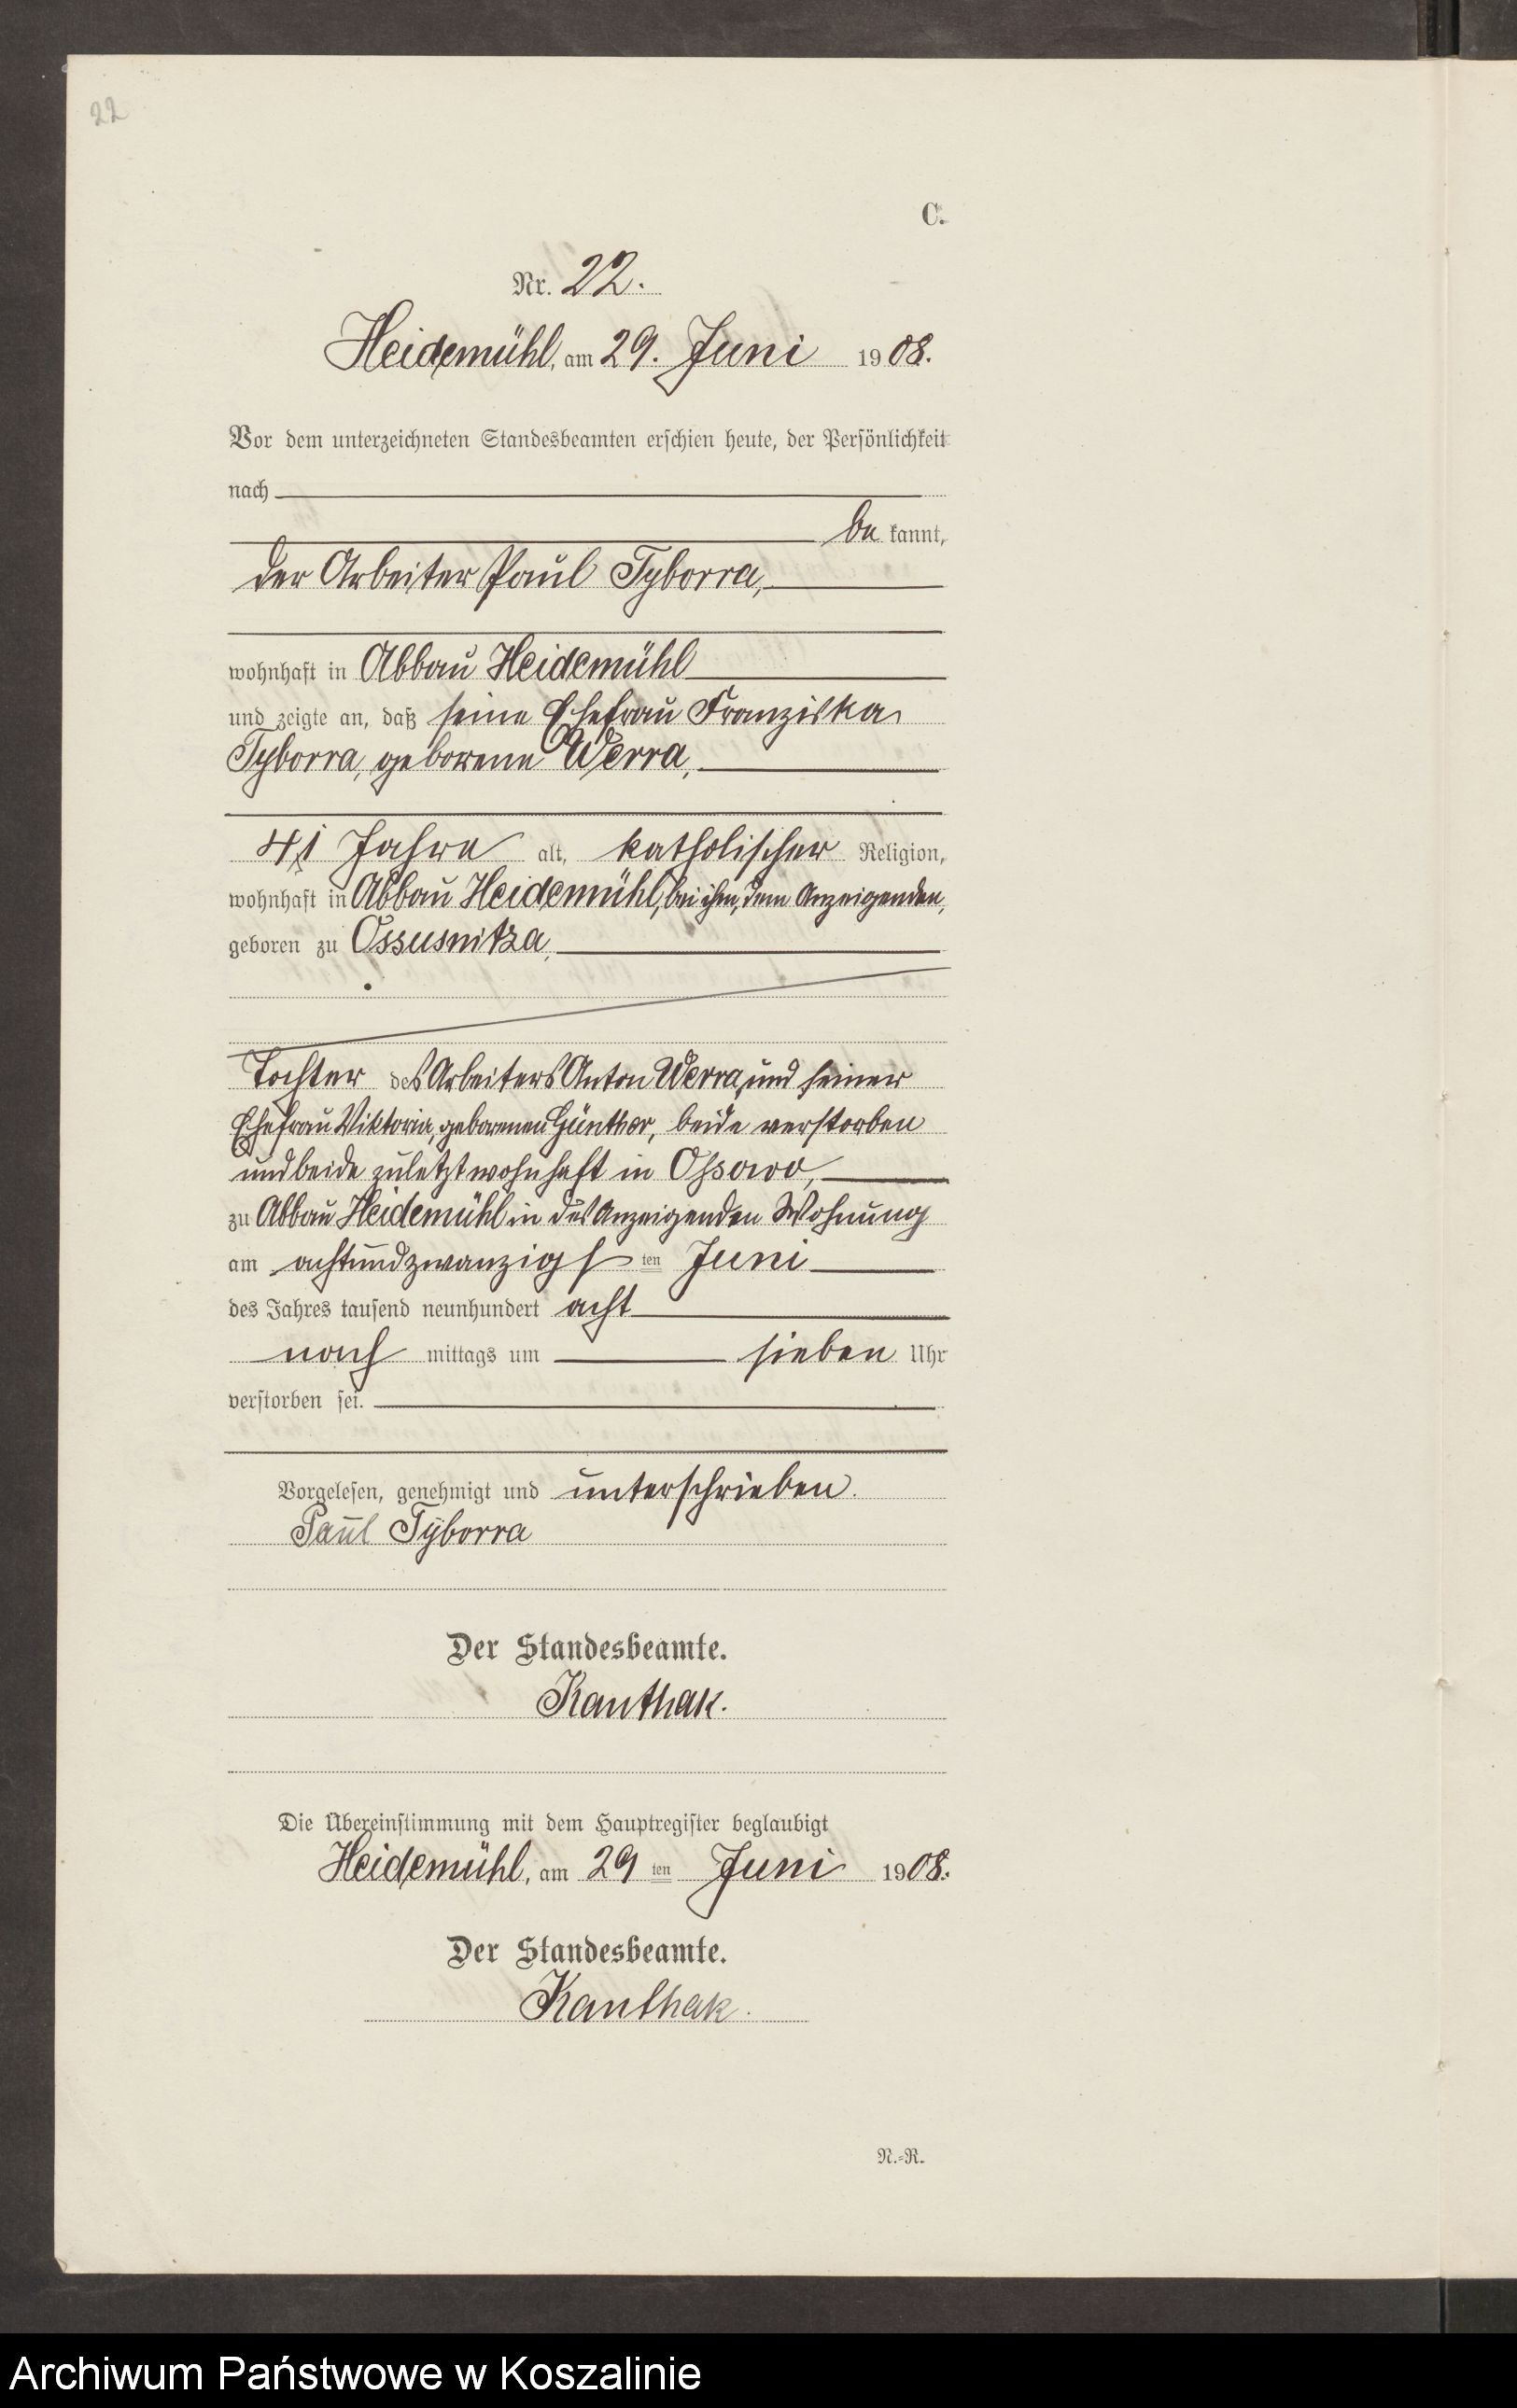 22
C.
Nr. 22.
Heidemühl, am 29. Juni 1908.
Vor dem unterzeichneten Standesbeamten erschien heute, der Persönlichkeit
nach
be kannt,
der Arbeiter Paul Tyborra,
wohnhaft in Abbau Heidemühl
und zeigte an, daß seine Ehefrau Franziska
Tyborra, geborene Werra,
41 Jahre alt, katholischer Religion,
wohnhaft in Abbau Heidemühl, bei ihm, dem Anzeigenden,
geboren zu Ossusnitza,
Tochter des Arbeiters Anton Werra, und seiner
Ehefrau Viktoria, geborenen Günther, beide verstorben
und beide zuletzt wohnhaft in Ossowo,
zu Abbau Heidemühl in des Anzeigenden Wohnung
am achtundzwanzigsten Juni
des Jahres tausend neunhundert acht
nach mittags um sieben Uhr
verstorben sei.
Vorgelesen, genehmigt und unterschrieben.
Paul Tyborra
Der Standesbeamte.
Kanthak.
Die Übereinstimmung mit dem Hauptregister beglaubigt
Heidemühl, am 29 ten Juni 1908.
Der Standesbeamte.
Kanthak.
N.=R.
Archiwum Państwowe w Koszalinie